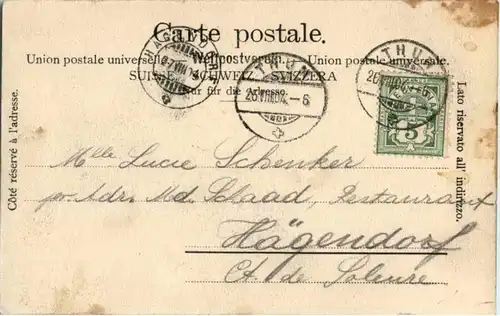 Carte postale.
Union postale universelle. Weltpostverein. Union postale universale.
SUISSE. SCHWEIZ. SVIZZERA
Nur für die Adresse.
THUN
26.VIII.04.-6
THUN
26.VIII.04.-6
5
Côté réservé à l'adresse.
Lato riservato all' indirizzo.
Mlle Lucie Schenker
pr Adr. Md. Schaad, Restaurant
Hägendorf
Ct. de Soleure